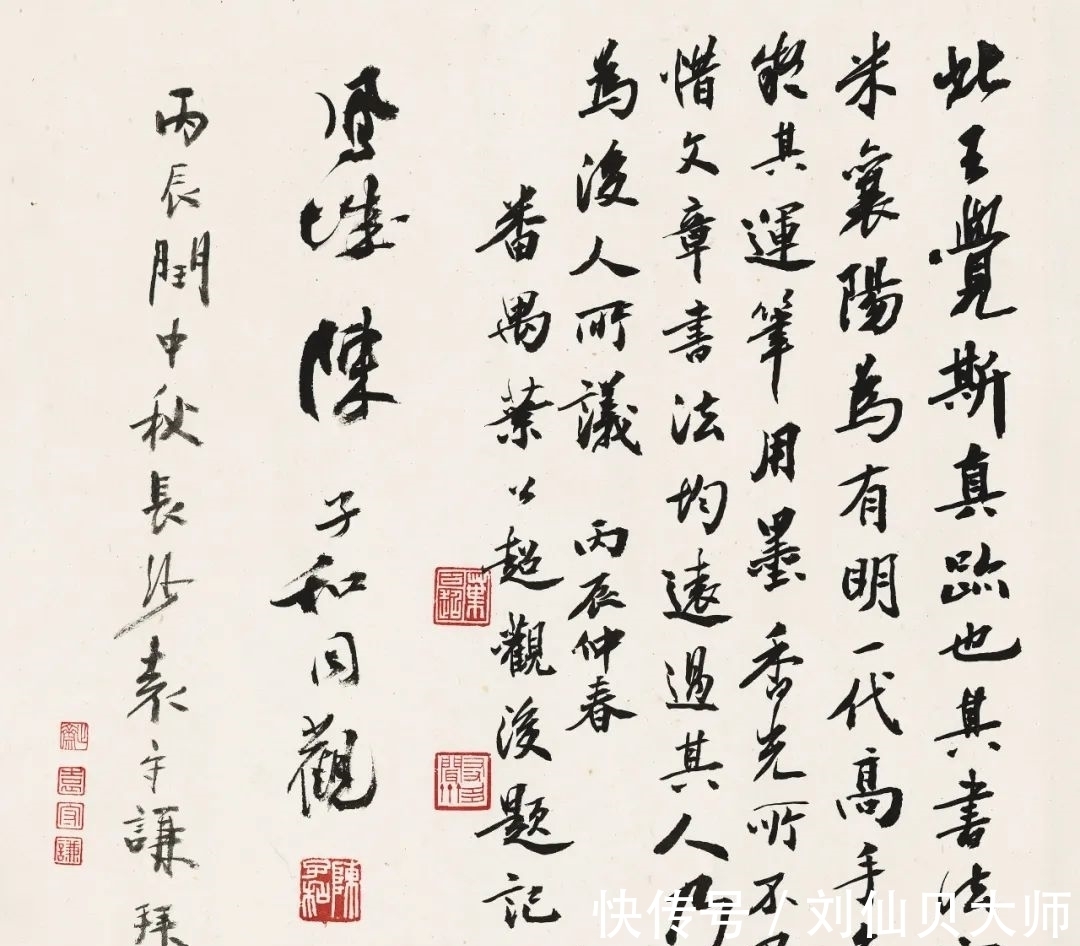 此王覺斯真跡也其書法
米襄陽為有明一代高手
其運筆用墨香光所不
惜文章書法均遠過其人
為後人所議 丙辰仲春
番禺葉公超觀後題記
葉公超
鳳城陳子和同觀
陳子和
丙辰閏中秋長沙袁守謙拜
袁守謙
快传号/刘仙贝大师